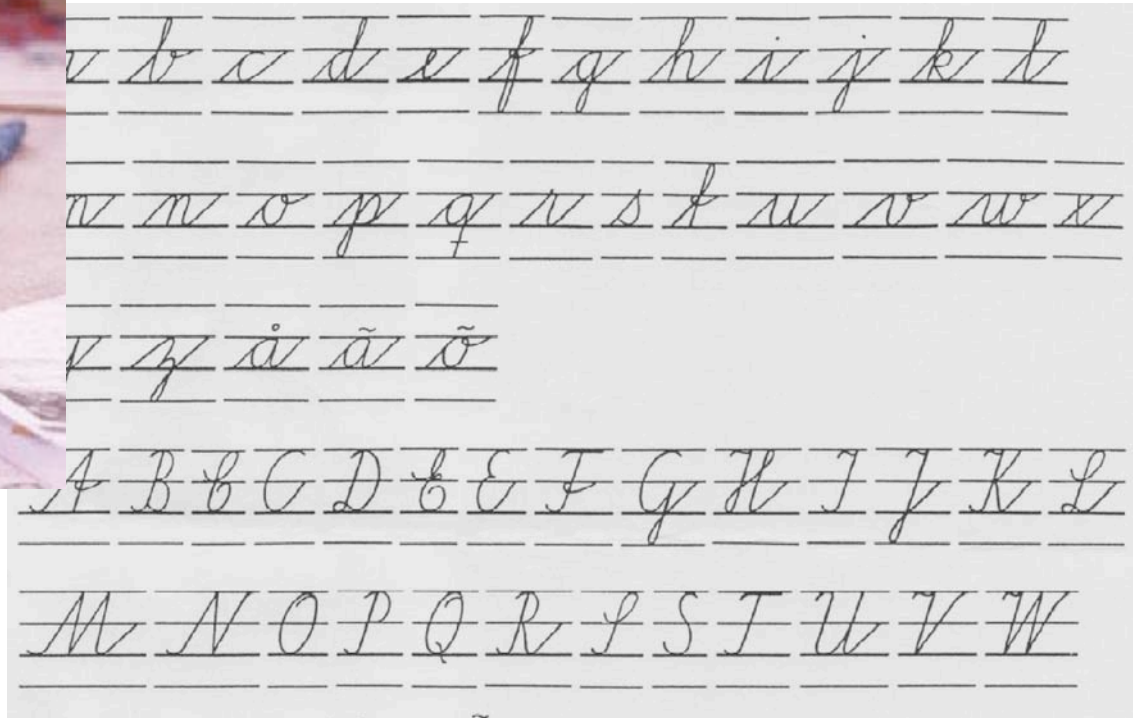 b c d e f g h i j k l
n o p q r s t u v w x
z å ã õ
A B C C D E E F G H I J K L
M N O P Q R S S T U V W